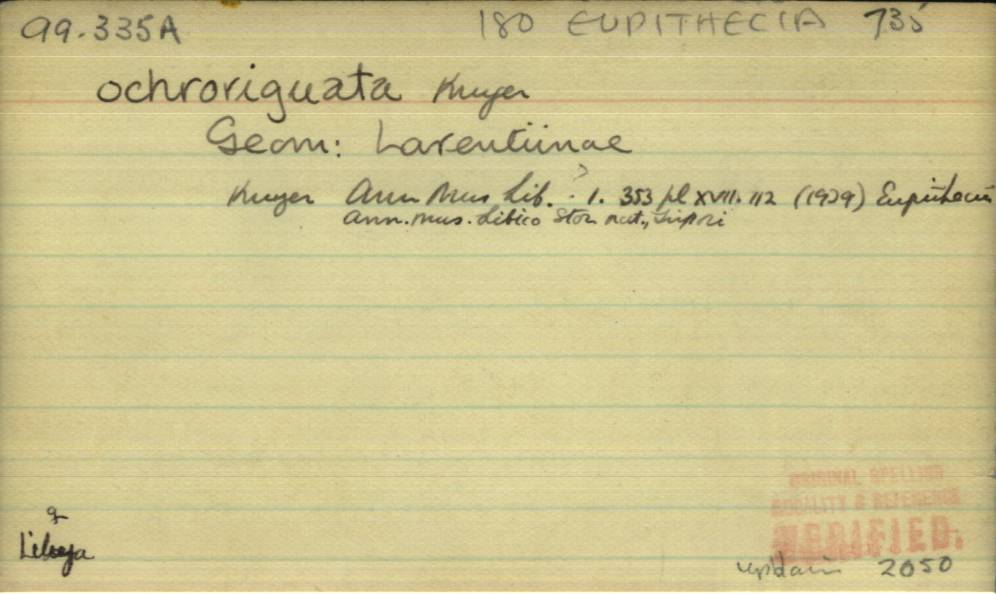 99.335A 180 EUPITHECIA 735
ochroriguata Kruger
Geom: Larentiinae
Kruger Ann Mus Lib. ? 1. 353 pl XVII. 112 (1929) Eupithecia
Ann. Mus. Libico Stor. nat., Tripoli
ORIGINAL SPELLING
LOCALITY & REFERENCE
VERIFIED.
Libya
2050